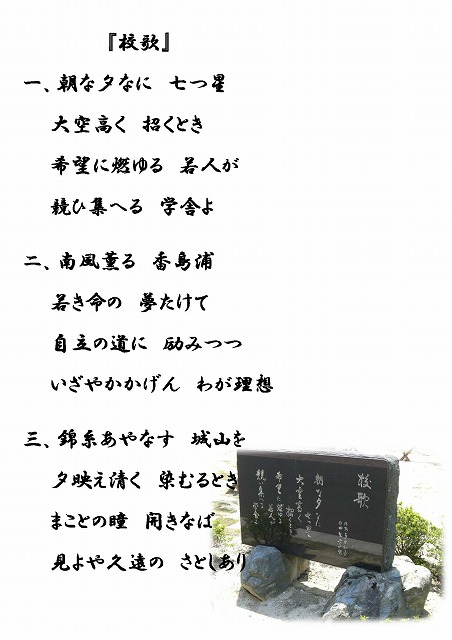 『校歌』
一、朝な夕なに　七つ星
大空高く　招くとき
希望に燃ゆる　若人が
競ひ集へる　学舎よ
二、南風薫る　香島浦
若き命の　夢たけて
自立の道に　励みつつ
いざやかかげん　わが理想
三、錦糸あやなす　城山を
夕映え清く　染むるとき
まことの瞳　開きなば
見よや久遠の　さとしあり
校歌
朝な夕なに　七つ星
大空高く　招くとき
希望に燃ゆる　若人が